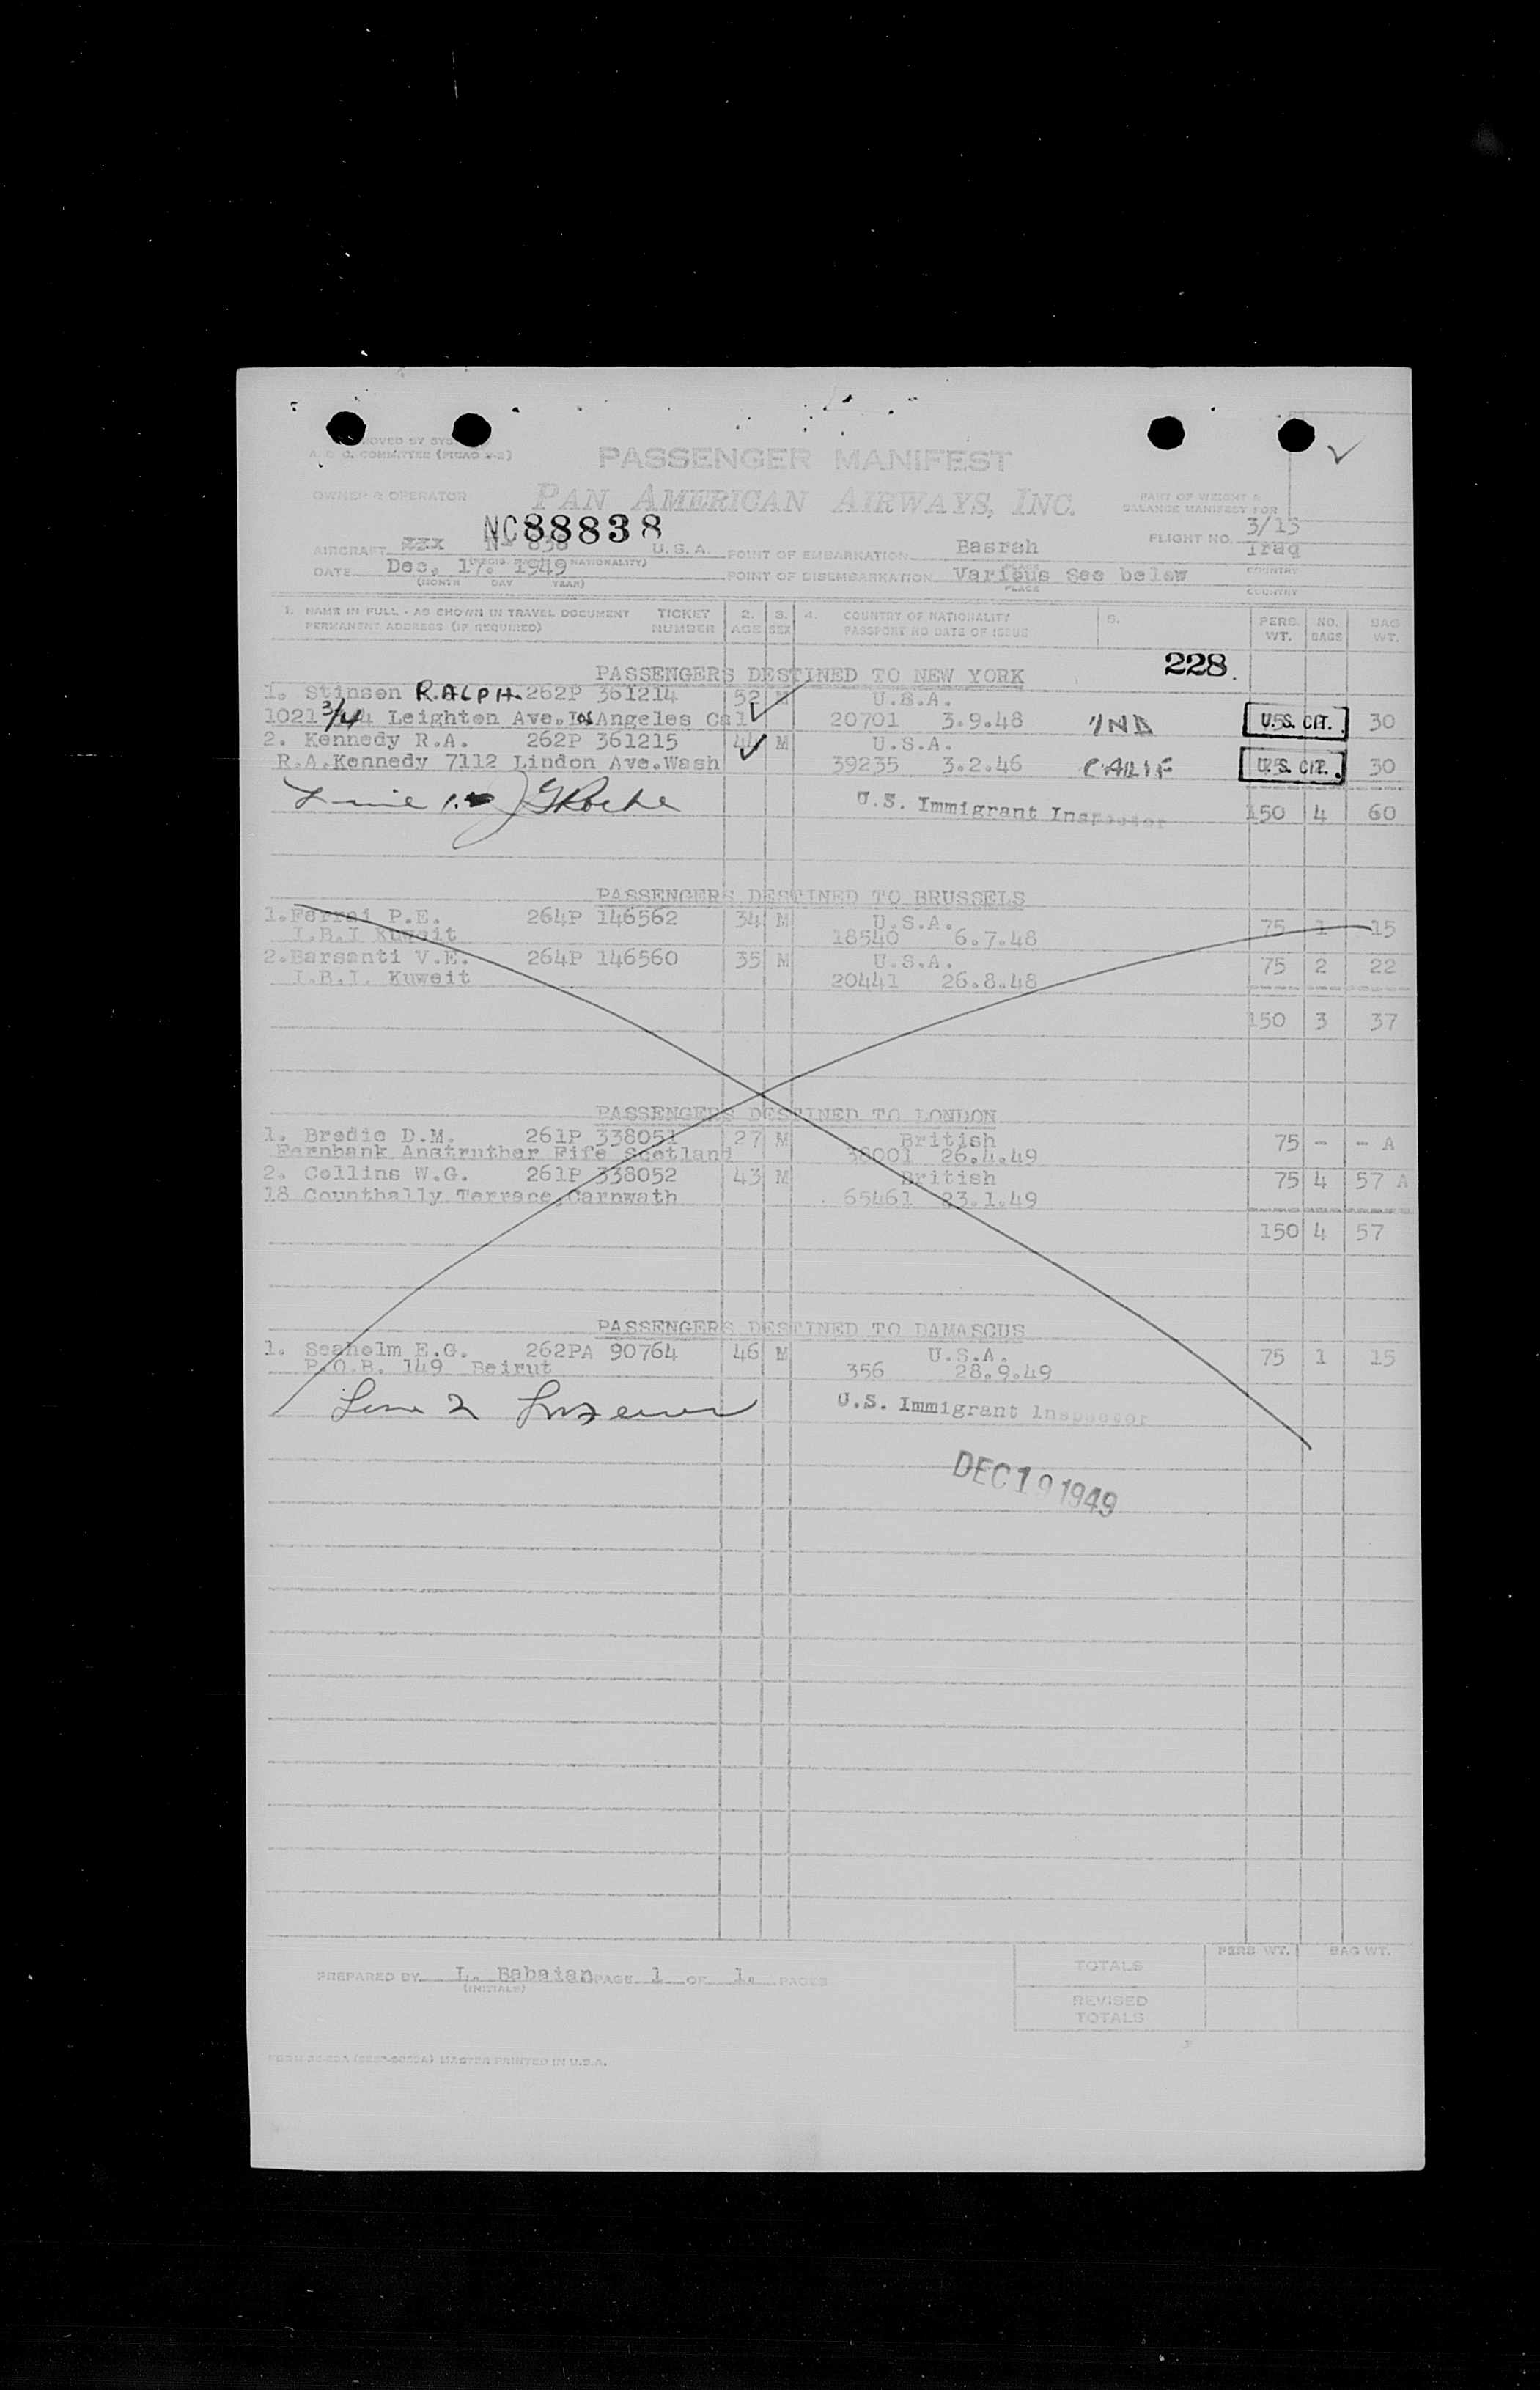 A. & C. COMMITTEE (PICAO 2-2)
PASSENGER MANIFEST
OWNER & OPERATOR
PAN AMERICAN AIRWAYS, INC.
PART OF WEIGHT &
BALANCE MANIFEST FOR
NC88838
3/15
FLIGHT NO.
AIRCRAFT XXX N- 838 U.S.A. POINT OF EMBARKATION Basrah Iraq
PLACE COUNTRY
DATE Dec. 17. 1949 POINT OF DISEMBARKATION Various See below
(MONTH DAY YEAR) PLACE COUNTRY
1. NAME IN FULL - AS SHOWN IN TRAVEL DOCUMENT TICKET 2. 3. 4. COUNTRY OF NATIONALITY 5. PERS. NO. BAG
PERMANENT ADDRESS (IF REQUIRED) NUMBER AGE SEX PASSPORT NO DATE OF ISSUE WT. BAGS WT.
PASSENGERS DESTINED TO NEW YORK 228.
1. Stinson RALPH 262P 361214 52 M U.S.A.
1021 3/4 Leighton Ave. Los Angeles Cal 20701 3.9.48 IND U.S. CIT. 30
2. Kennedy R.A. 262P 361215 44 M U.S.A.
R.A.Kennedy 7112 Lindon Ave.Wash 39235 3.2.46 CALIF U.S. CIT. 30
U.S. Immigrant Inspector 150 4 60
PASSENGERS DESTINED TO BRUSSELS
1.Ferrei P.E. 264P 146562 34 M U.S.A. 75 1 15
I.B.I Kuweit 18540 6.7.48
2.Barsanti V.E. 264P 146560 35 M U.S.A. 75 2 22
I.B.I. Kuweit 20441 26.8.48
150 3 37
PASSENGERS DESTINED TO LONDON
1. Bredie D.M. 261P 338051 27 M British 75 - - A
Fernbank Anstruther Fife Scotland 38001 26.4.49
2. Collins W.G. 261P 338052 43 M British 75 4 57 A
18 Counthally Terrace,Carnwath 65461 23.1.49
150 4 57
PASSENGERS DESTINED TO DAMASCUS
1. Seaholm E.G. 262PA 90764 46 M U.S.A. 75 1 15
P.O.B. 149 Beirut 356 28.9.49
U.S. Immigrant Inspector
DEC 19 1949
PERS WT. BAG WT.
TOTALS
PREPARED BY L. Babaian PAGE 1 OF 1. PAGES
(INITIALS)
REVISED
TOTALS
MASTER PRINTED IN U.S.A.